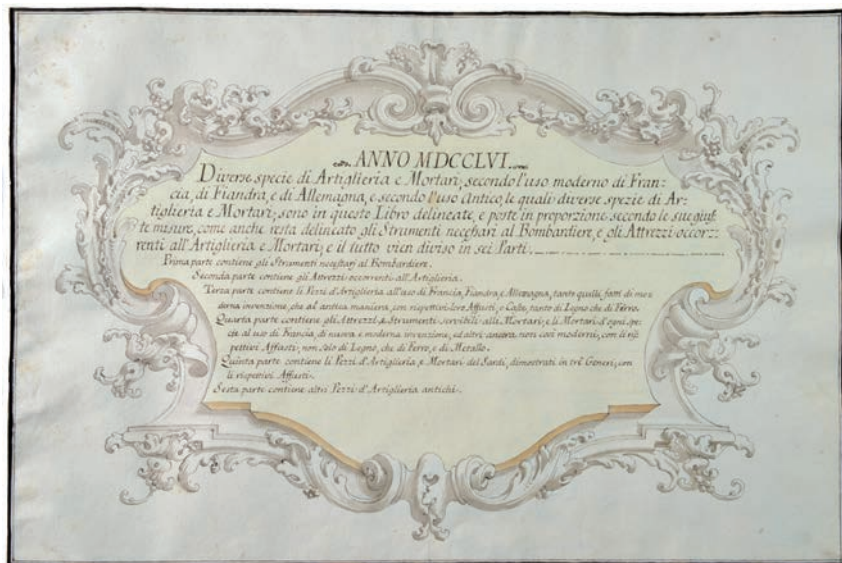 ANNO MDCCLVI.
Diverse specie di Artiglieria e Mortari, secondo l'uso moderno di Fran-
cia, di Fiandra, e di Allemagna, e secondo l'uso Antico, le quali diverse spezie di Ar-
tiglieria e Mortari, sono in questo Libro delineate, e poste in proporzione secondo le sue gius-
te misure, come anche resta delineato gli Strumenti necessari al Bombardiere, e gli Attrezzi occor-
renti all'Artiglieria e Mortari, e il tutto vien diviso in sei Parti.
Prima parte contiene gli Strumenti necessari al Bombardiere.
Seconda parte contiene gli Attrezzi occorrenti all'Artiglieria.
Terza parte contiene li Pezzi d'Artiglieria all'uso di Francia, Fiandra, e Allemagna, tanto quelli fatti di mo-
derna invenzione, che al antica maniera, con rispettivi loro Affusti, e Casse, tanto di Legno che di Ferro.
Quarta parte contiene gli Attrezzi, e Strumenti servibili alli Mortari, e li Mortari d'ogni spe-
cie al uso di Francia, di nuova e moderna invenzione, ed altri ancora non così moderni, con li ris-
pettivi Affusti, non solo di Legno, che di Ferro, e di Metallo.
Quinta parte contiene li Pezzi d'Artiglieria e Mortari del Sardi, dimostrati in trè Generi, con
li rispettivi Affusti.
Sesta parte contiene altri Pezzi d'Artiglieria antichi.